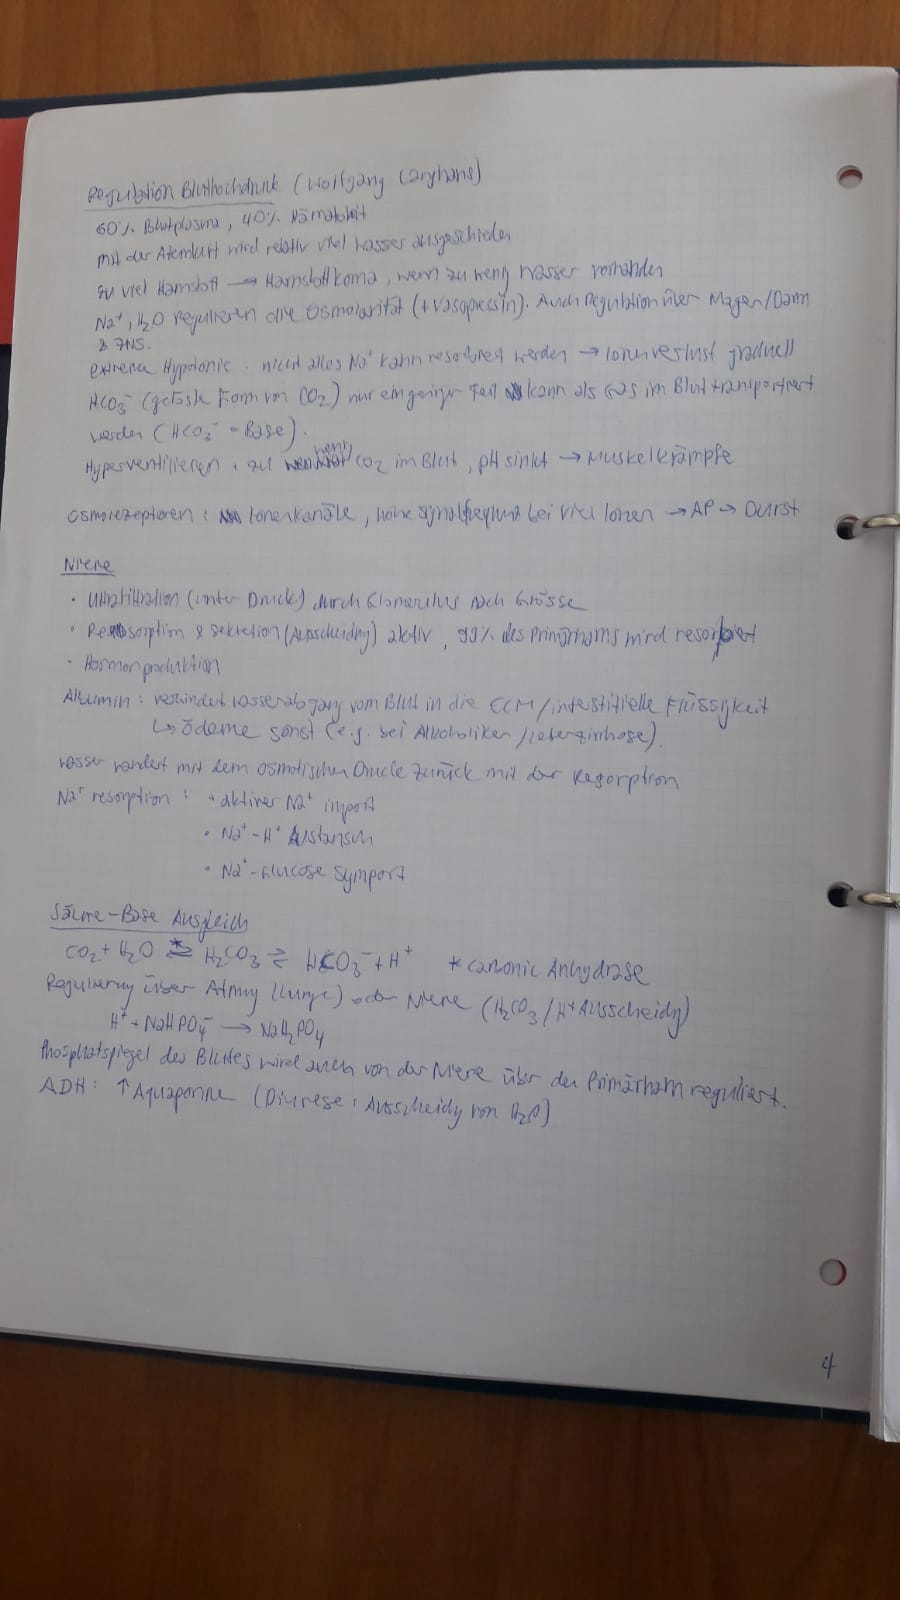 Regulation Bluthochdruck (Wolfgang Langhans)
60% Blutplasma, 40% Hämatokrit
mit der Atemluft wird relativ viel Wasser ausgeschieden
zu viel Harnstoff → Harnstoffkoma, wenn zu wenig Wasser vorhanden
Na⁺, H₂O regulieren die Osmolarität (+Vasopressin). Auch Regulation über Magen/Darm
& ZNS.
extreme Hypotonie: nicht alles Na⁺ kann resorbiert werden → Ionenverlust graduell
HCO₃⁻ (gelöste Form von CO₂) nur ein geringer Teil kann als Gas im Blut transportiert
werden (HCO₃⁻ = Base).
Hyperventilieren: zu wenig CO₂ im Blut, pH sinkt → Muskelkrämpfe
Osmorezeptoren: Ionenkanäle, hohe Signalfrequenz bei viel Ionen → AP → Durst
Niere
• Ultrafiltration (unter Druck) durch Glomerulus nach Grösse
• Resorption & Sekretion (Ausscheidung) aktiv, 99% des Primärharns wird resorbiert
• Hormonproduktion
Albumin: verhindert Wasserabgang vom Blut in die ECM/interstitielle Flüssigkeit
↳ Ödeme sonst (e.g. bei Alkoholiken/Leberzirrhose).
Wasser wandert mit dem osmotischen Druck zurück mit der Resorption
Na⁺ resorption: • aktiver Na⁺ import
• Na⁺-H⁺ Austausch
• Na⁺-Glucose Symport
Säure-Base Ausgleich
CO₂ + H₂O ⇌* H₂CO₃ ⇌ HCO₃⁻ + H⁺ * Carbonic Anhydrase
Regulierung über Atmung (Lunge) oder Niere (H₂CO₃/H⁺ Ausscheidung)
H⁺ + NaHPO₄⁻ → NaH₂PO₄
Phosphatspiegel des Blutes wird auch von der Niere über den Primärharn reguliert.
ADH: ↑ Aquaporine (Diurese: Ausscheidung von H₂O)
4